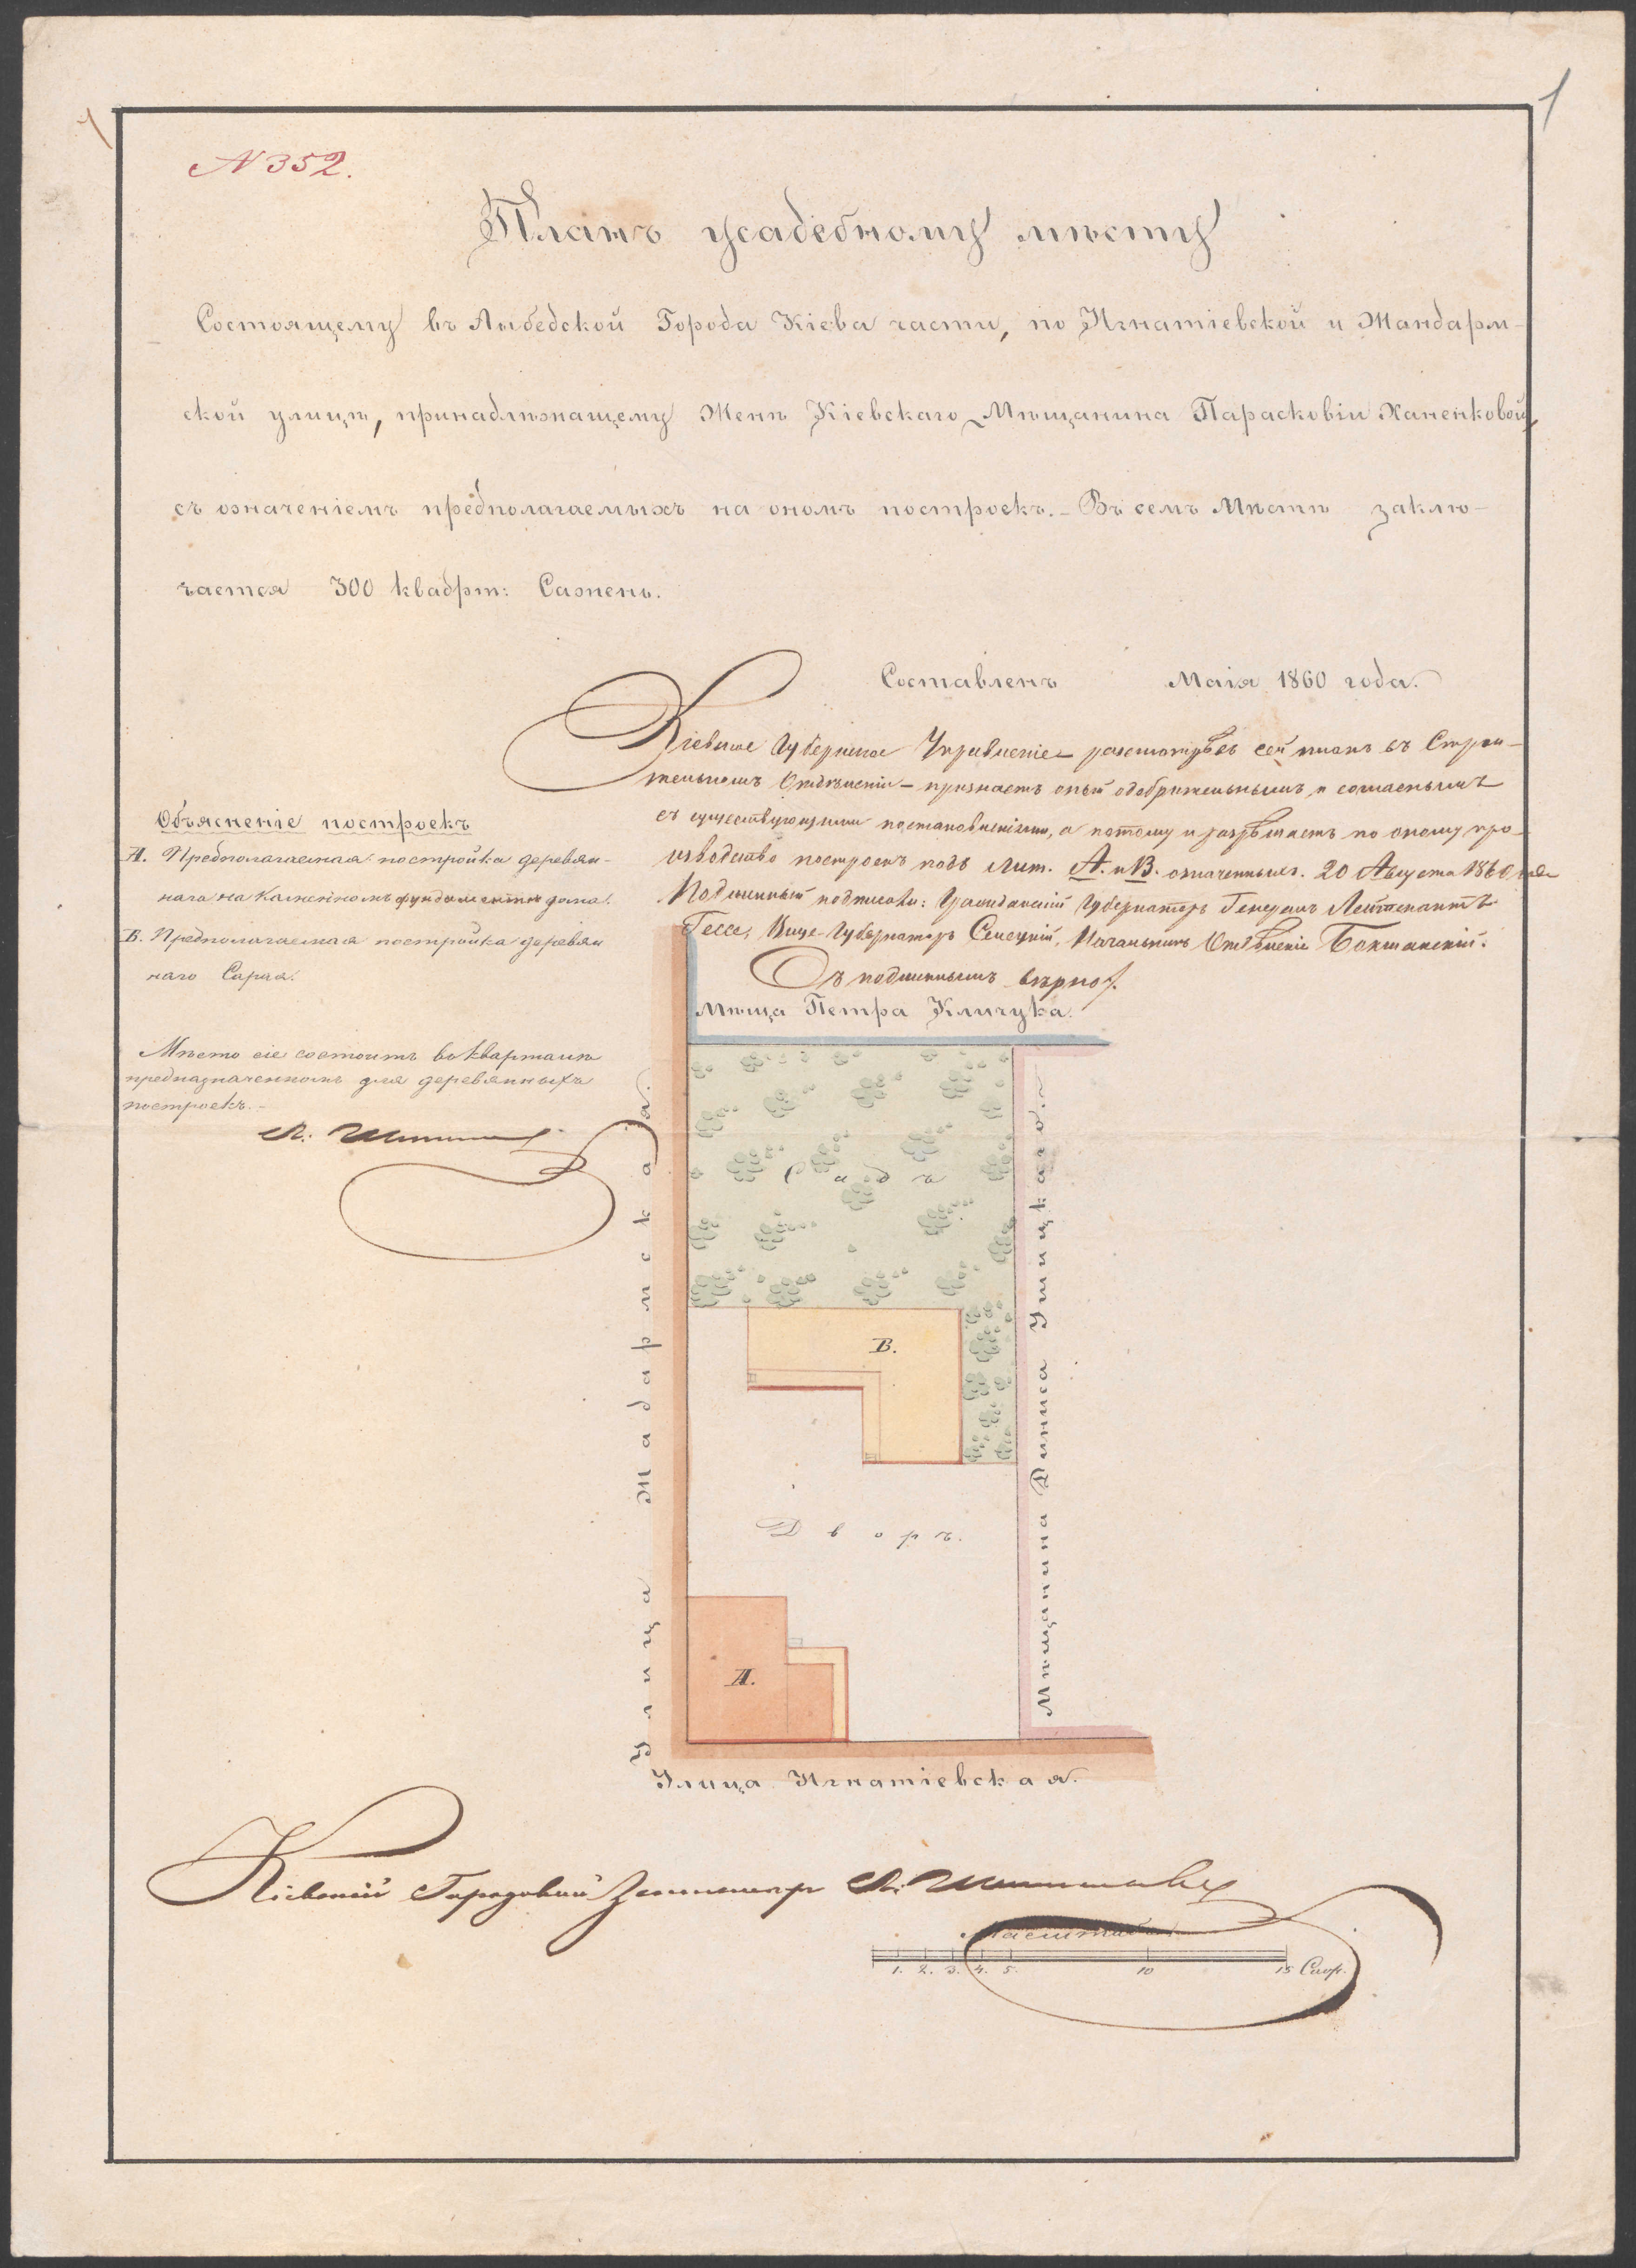 1
N 352.
Планъ усадебному мѣсту
Состоящему въ Лыбедской Города Кіева части, по Игнатіевской и Жандарм-
ской улицѣ, принадлѣжащему Женѣ Кіевскаго Мѣщанина Парасковіи Ханенковой,
съ означеніемъ предполагаемыхъ на ономъ построекъ. - Въ семъ Мѣстѣ заклю-
чается 300 квадрт: Сажень.
Составленъ Маія 1860 года.
Кіевское Губернское Управленіе разсмотрѣвъ сей планъ въ Строи-
тельномъ Отдѣленіи - признаетъ оный одобрительнымъ и согласнымъ
съ существующими постановленіями, а потому и разрѣшаетъ по оному про-
изводство построекъ подъ Лит. А. и В. означенныхъ. 20 Августа 1860 года
Подлинный подписали: Гражданскій Губернаторъ Генералъ Лейтенантъ
Гессе, Вице-Губернаторъ Селецкій, Начальникъ Отдѣленія
Съ подлиннымъ вѣрно.
Объясненіе построекъ
А. Предполагаемая постройка деревян-
наго на каменномъ фундаментѣ дома.
В. Предполагаемая постройка деревян
наго Сарая.
Мѣсто сіе состоитъ въ кварталѣ
предназначенномъ для деревянныхъ
построекъ. -
Мѣща Петра Кличука.
Садъ
В.
Дворъ.
А.
Улица Жадармская.
Мѣщанина Диниса Ушицкаго.
Улица Игнатіевская.
Кіевскій Городовой Землемеръ
Масштабъ
1. 2. 3. 4. 5. 10 15 Саж.